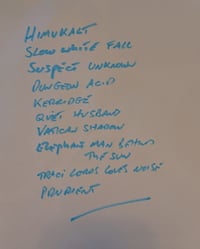 HIMUKALT
SLOW WHITE FALL
SUSPECT UNKNOWN
DUNGEON ACID
KERRIDGE
QUIET HUSBAND
VATICAN SHADOW
ELEPHANT MAN BEHIND
THE SUN
TRACI LORDS LOVES NOISE
PRURIENT